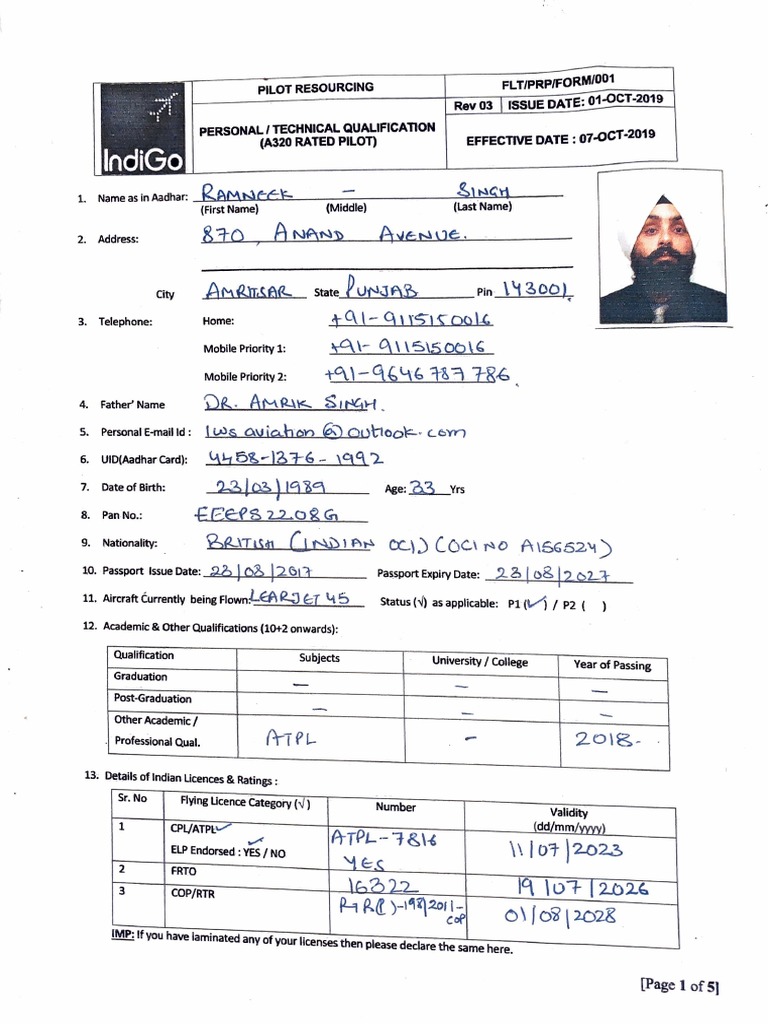 IndiGo
PILOT RESOURCING
PERSONAL / TECHNICAL QUALIFICATION
(A320 RATED PILOT)
FLT/PRP/FORM/001
Rev 03 ISSUE DATE: 01-OCT-2019
EFFECTIVE DATE : 07-OCT-2019
1. Name as in Aadhar: RAMNEEK – SINGH
(First Name) (Middle) (Last Name)
2. Address: 870, ANAND AVENUE.
City AMRITSAR State PUNJAB Pin 143001.
3. Telephone: Home: +91-9115150016
Mobile Priority 1: +91-9115150016
Mobile Priority 2: +91-9646 787 786.
4. Father' Name DR. AMRIK SINGH.
5. Personal E-mail Id : lws aviation @ outlook.com
6. UID(Aadhar Card): 4458-1376-1992
7. Date of Birth: 23/03/1989 Age: 33 Yrs
8. Pan No.: EEEPS2208G
9. Nationality: BRITISH (INDIAN OCI) (OCI NO A156524)
10. Passport Issue Date: 23/08/2017 Passport Expiry Date: 23/08/2027
11. Aircraft Currently being Flown: LEARJET 45 Status (√) as applicable: P1 (✓) / P2 ( )
12. Academic & Other Qualifications (10+2 onwards):
Qualification Subjects University / College Year of Passing
Graduation – – –
Post-Graduation – – –
Other Academic /
Professional Qual. ATPL – 2018-
13. Details of Indian Licences & Ratings :
Sr. No Flying Licence Category (√) Number Validity
(dd/mm/yyyy)
1 CPL/ATPL✓ ATPL-7816 11/07/2023
ELP Endorsed : YES / NO ✓ YES
2 FRTO 16322 19/07/2026
3 COP/RTR RTR(P)-198/2011-COP 01/08/2028
IMP: If you have laminated any of your licenses then please declare the same here.
[Page 1 of 5]